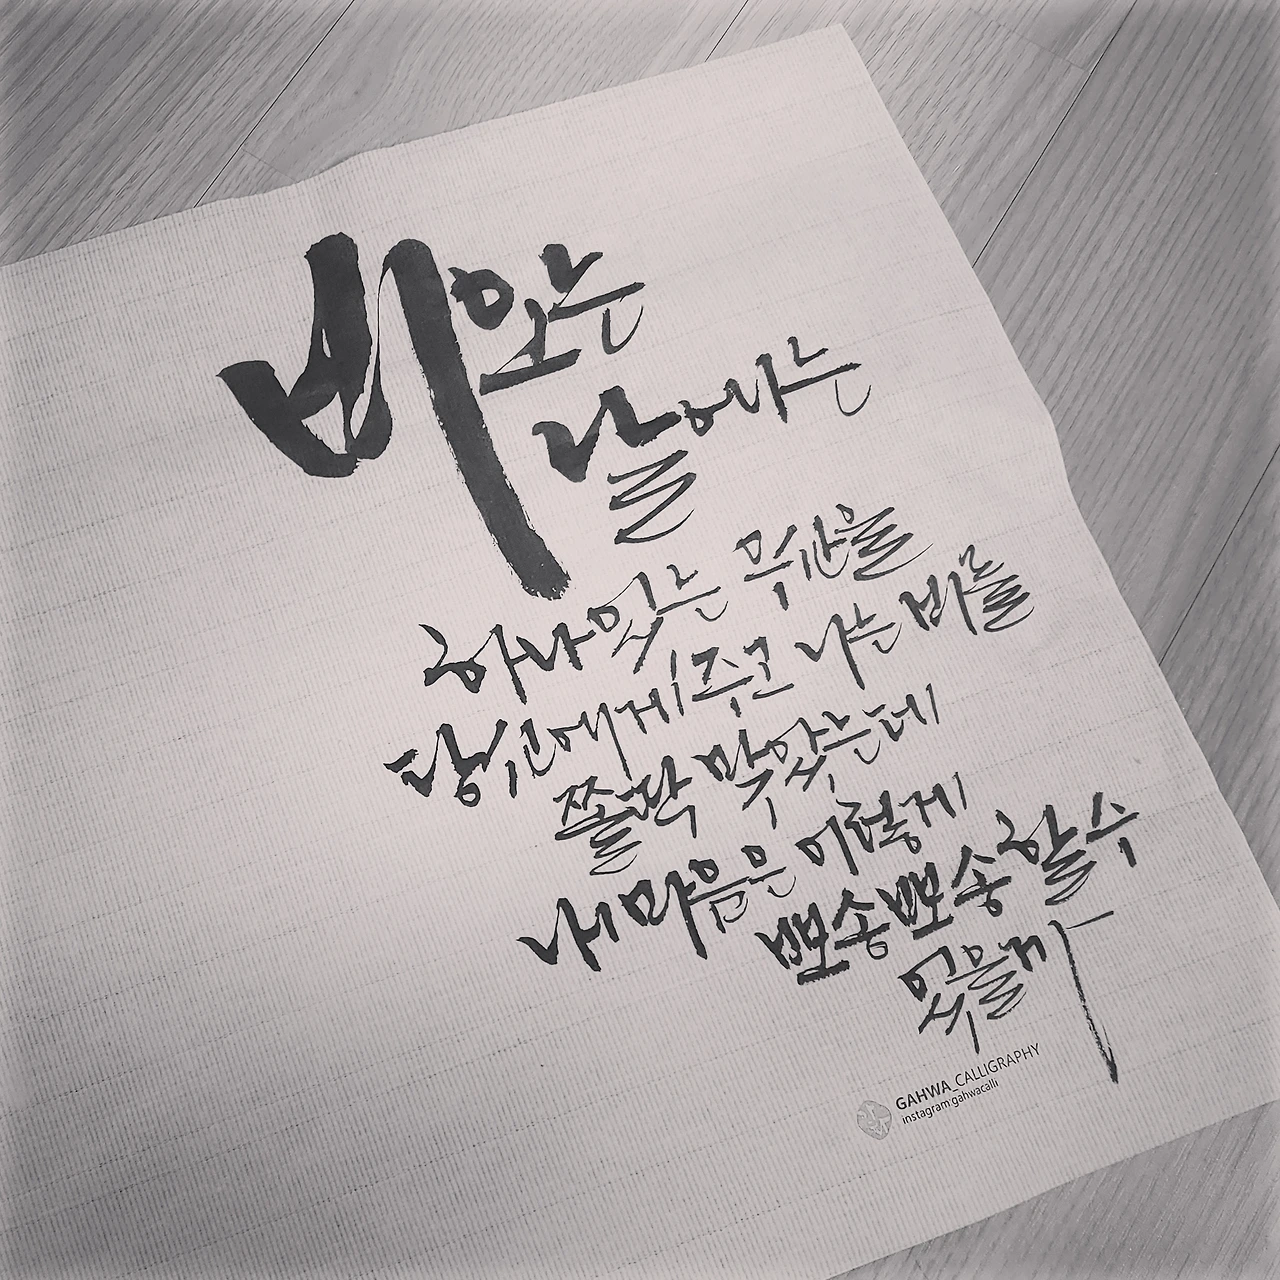 비오는
날 나는
하나 있는 우산을
당신에게 주고 나는 비를
쫄딱 맞았는데
내 마음은 이렇게
뽀송뽀송할 수
있을까
GAHWA_CALLIGRAPHY
instagram:gahwacalli